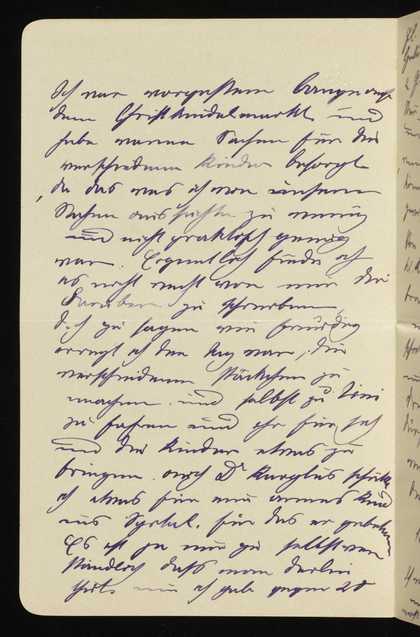 Ich war vorgestern lange auf
dem Christkindelmarkt und
habe warme Sachen für die
verschiedenen Kinder besorgt
da das was ich von unseren
Sachen aussuchte zu wenig
und nicht praktisch genug
war. Eigentlich finde ich
es nicht recht von mir dir
zu schreiben
d.h. zu sagen wie freudig
erregt ich den Tag war, die
verschiedenen Päckchen zu
machen und selbst zu
zu fahren und ihr für sich
und die Kinder etwas zu
bringen. Auch Dr schickte
ich etwas für ein armes Kind
ins Spital, für das er gebeten
Es ist ja nur zu selbstver
ständlich dass man
thut ich gab gegen 20